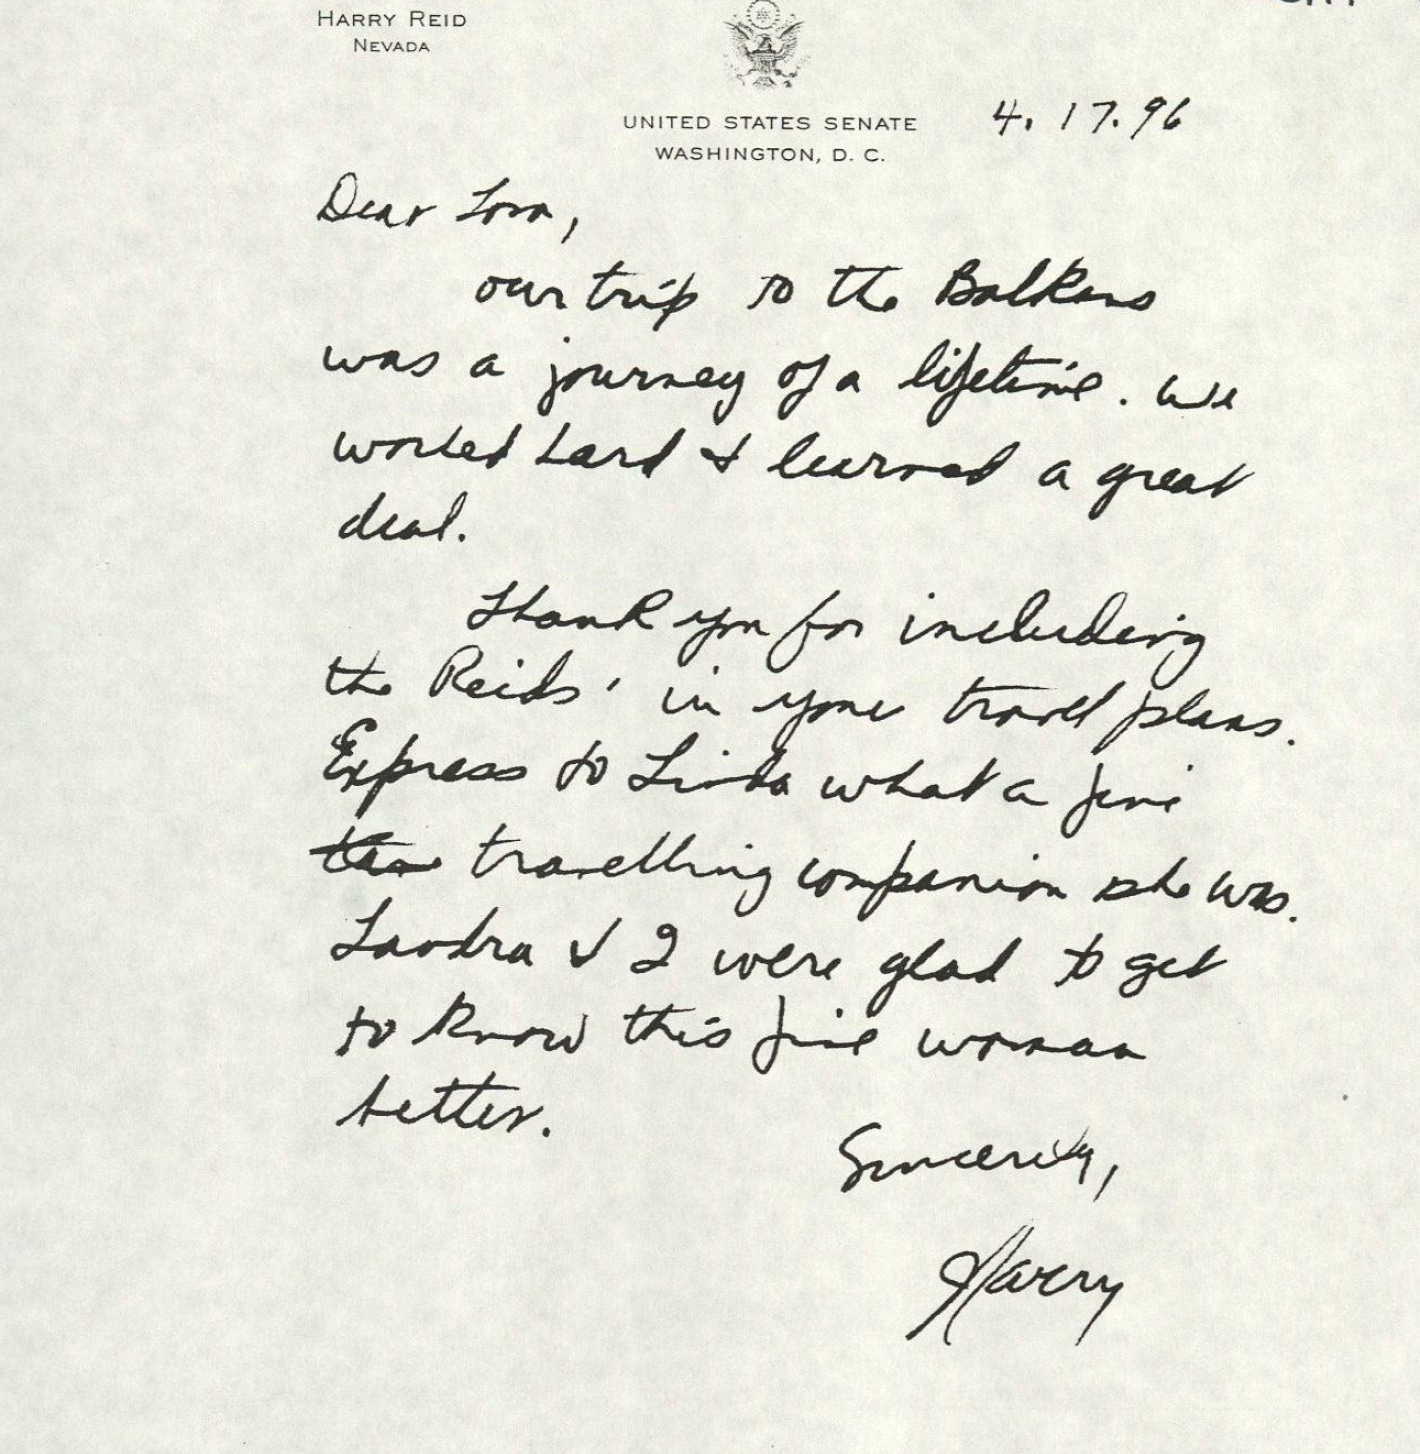 HARRY REID
NEVADA
UNITED STATES SENATE
WASHINGTON, D. C.
4. 17. 96
Dear Tom,
our trip to the Balkans
was a journey of a lifetime. We
worked hard & learned a great
deal.
Thank you for including
the Reids' in your travel plans.
Express to Linda what a fine
travelling companion she was.
Landra & I were glad to get
to know this fine woman
better.
Sincerely,
Harry